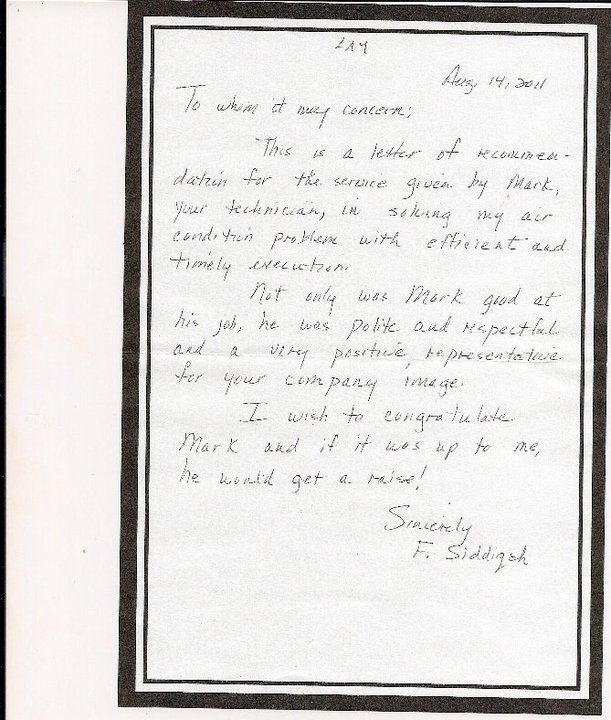 Aug, 14, 2011
To whom it may concern;
This is a letter of recommen-
dation for the service given by Mark,
your technician, in solving my air
condition problem with efficient and
timely execution.
Not only was Mark good at
his job, he was polite and respectful
and a very positive representative
for your company image.
I wish to congratulate
Mark and if it was up to me,
he would get a raise!
Sincerely
F. Siddiqsh